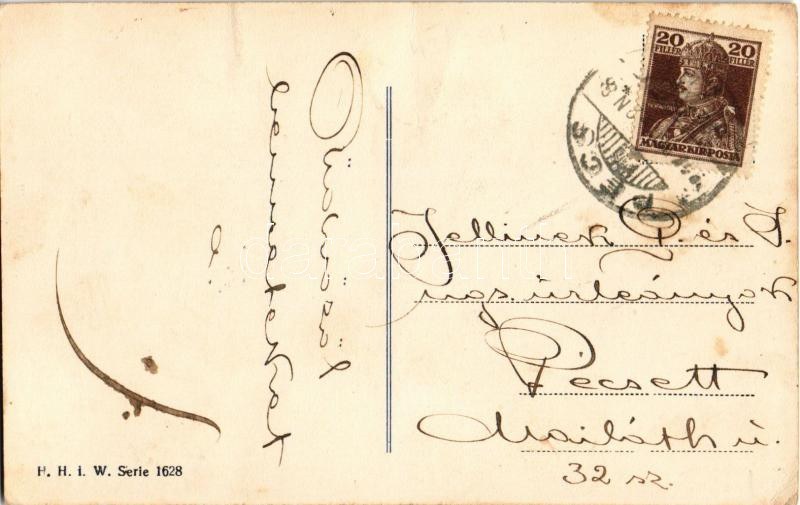 Üdvözöl
benneteket
20 20
FILLÉR FILLÉR
MAGYAR KIR. POSTA
PÉCS
Jellinek P. és J.
ngs. úrleányok
Pécsett
Mailáth u.
32 sz.
H. H. i. W. Serie 1628